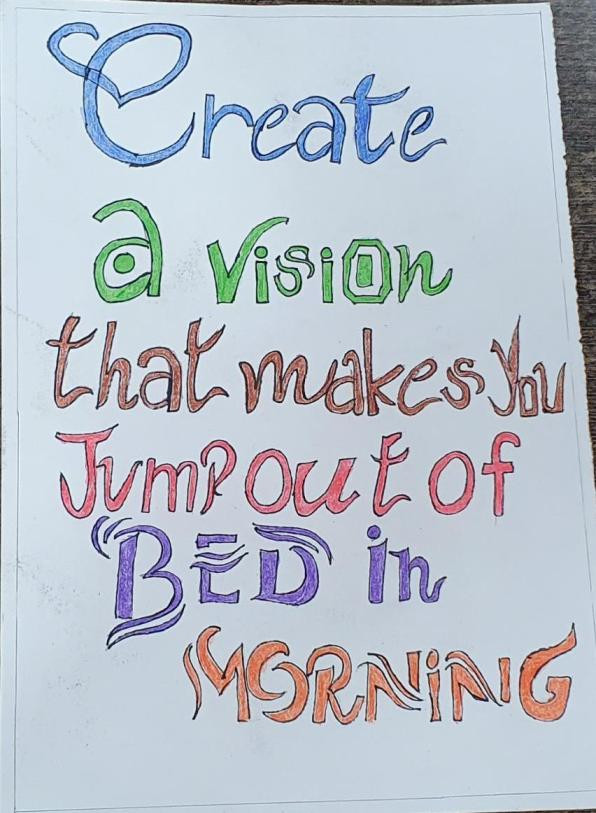 Create
a vision
that makes you
Jump out of
BED in
MORNING